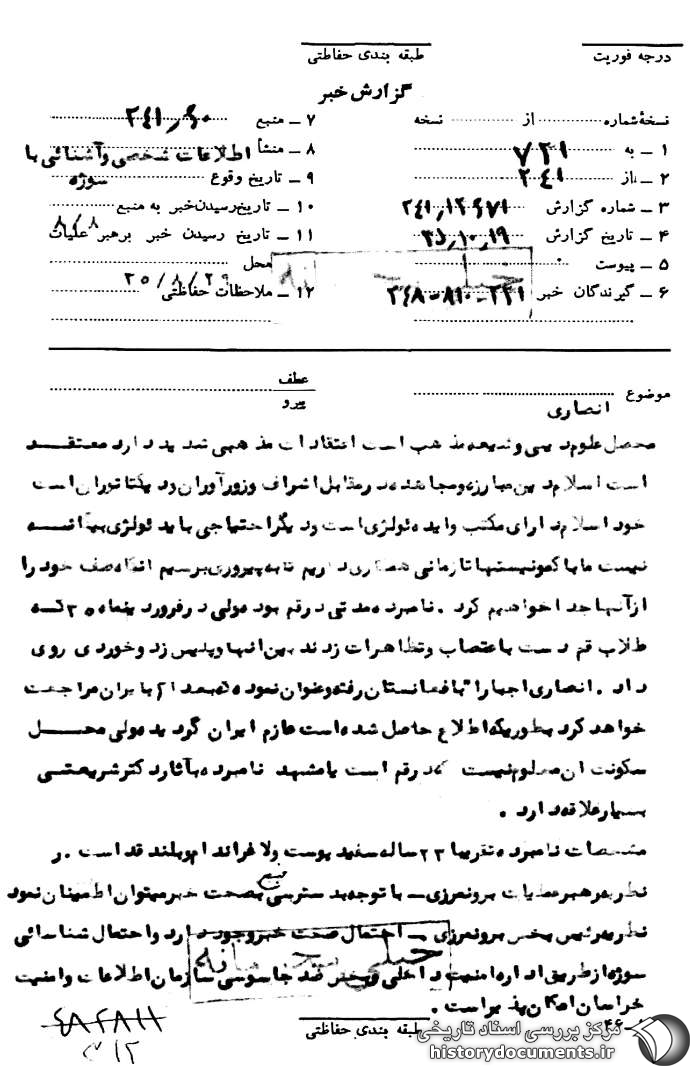 درجه فوریت
طبقه بندی حفاظتی
گزارش خبر
نسخهٔ شماره از نسخه
۱ ــ به ۷۲۱
۲ ــ از ۲۴۱
۳ ــ شماره گزارش
۴ ــ تاریخ گزارش ۳۵٫۱۰٫۱۹
۵ ــ پیوست
۶ ــ گیرندگان خبر
۷ ــ منبع
۸ ــ منشأ اطلاعات شخصی و آشنائی با سوژه
۹ ــ تاریخ وقوع
۱۰ ــ تاریخ رسیدن خبر به منبع
۱۱ ــ تاریخ رسیدن خبر برهبر عملیات ۸/۸
محل
۱۲ ــ ملاحظات حفاظتی ۲۵/۸/۲۹
موضوع انصاری
عطف
پیرو
محصل علوم دینی و شیعه مذهب است اعتقادات مذهبی شدید دارد معتقد
است اسلام دین مبارزه و مجاهده در مقابل اشراف و زورآوران و دیکتاتوران است
خود اسلام دارای مکتب و ایدئولژی است و دیگر احتیاجی باید ئولژی بیگانه
نیست ما با کمونیستها تا زمانی همکاری داریم تا به پیروزی برسیم آنگاه صف خود را
از آنها جدا خواهیم کرد . نامبرده مدتی در قم بوده ولی در فروردینماه ۳۵ که
طلاب قم دست باعتصاب و تظاهرات زدند بین آنها و پلیس زد و خوردی روی
داد . انصاری اجبارا" بافغانستان رفته و عنوان نموده که بعدا" بایران مراجعت
خواهد کرد بطوریکه اطلاع حاصل شده است عازم ایران گردیده ولی محل
سکونت آن معلوم نیست که در قم است یا مشهد نامبرده بآثار دکتر شریعتی
بسیار علاقه دارد .
مشخصات نامبرده تقریبا ۲۳ ساله سفید پوست و لاغراندام و بلند قد است . ر
نظریه رهبر عملیات برونمرزی ــ با توجه بدسترسی منبع بصحت خبر میتوان اطمینان نمود
نظریه رئیس بخش برونمرزی ــ احتمال صحت خبر وجود دارد و احتمال شناسائی
سوژه از طریق اداره امنیت داخلی و بخش ضد جاسوسی سازمان اطلاعات و امنیت
خراسان امکان پذیر است .
خیلی محرمانه
طبقه بندی حفاظتی
۴۶ــ
مرکز بررسی اسناد تاریخی
historydocuments.ir